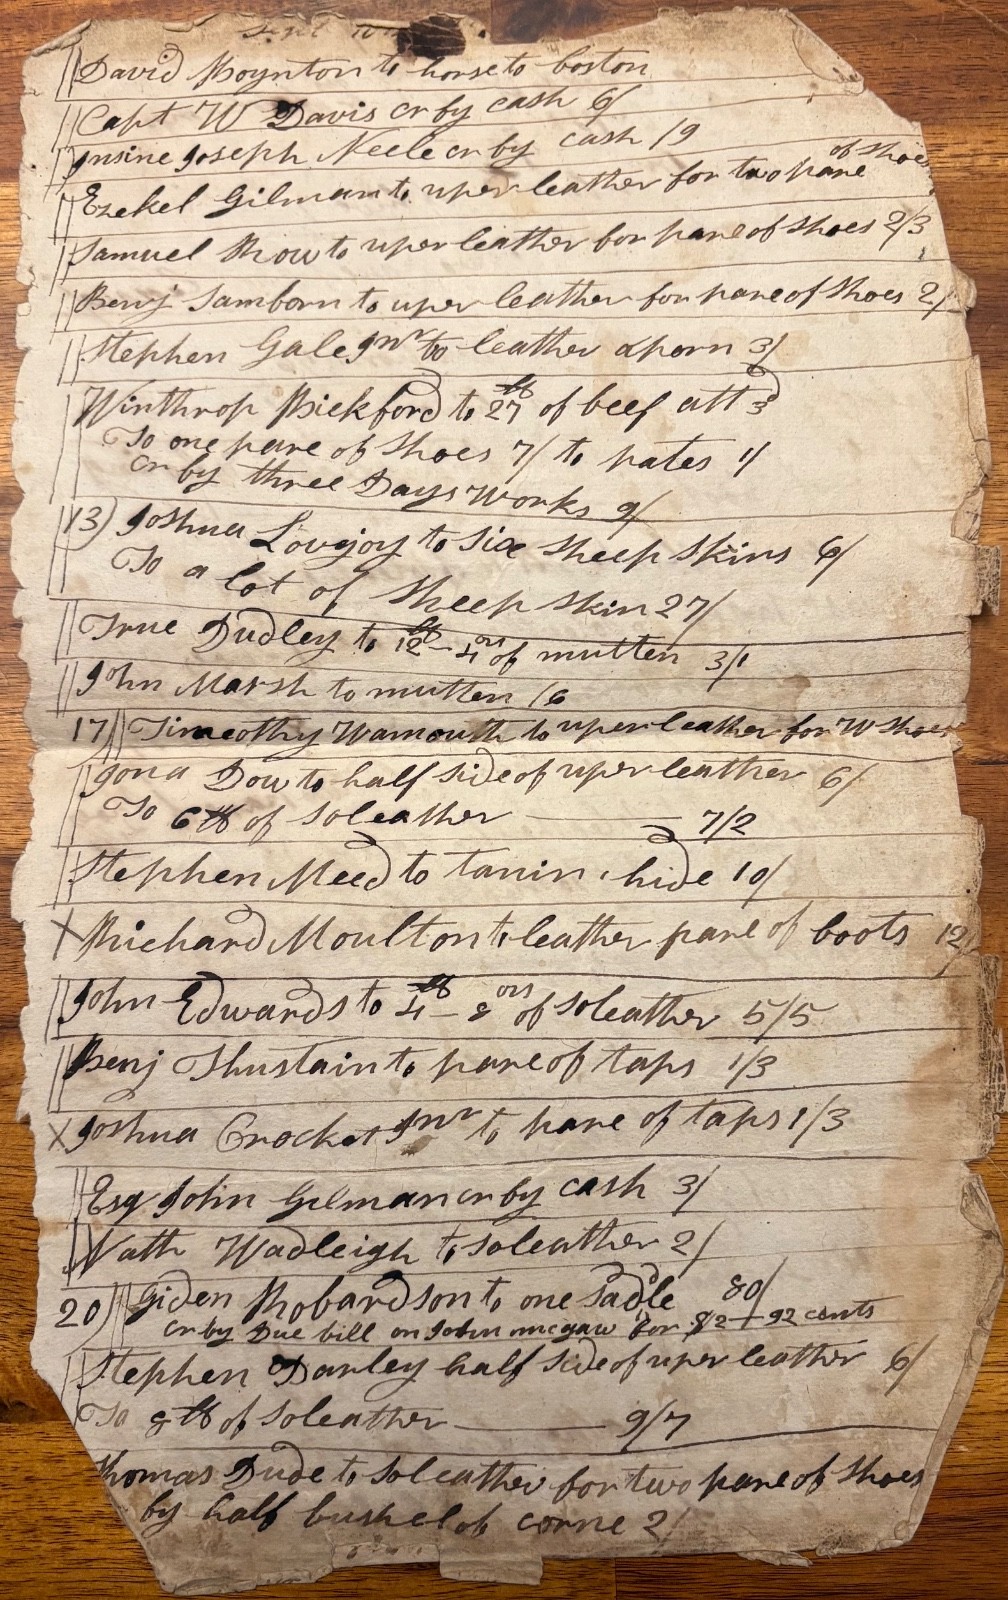 David Boynton to horse to boston
Capt W Davis cr by cash 6/
Insine Joseph Neele cr by cash /9
of Shoes
Ezekel Gilman to uper leather for two pare
Samuel Row to uper leather for pare of Shoes 2/3
Benj Samborn to uper leather for pare of Shoes 2/
Stephen Gale Jnr to leather aporn 3/
Winthrop Bickford to 27 lb of beef att 3d
To one pare of Shoes 7/ to pates 1/
cr by three Days Works 9/
13) Joshua Lovejoy to Six Sheep Skins 6/
To a lot of Sheep Skin 27/
True Dudley to 12 lb - 4 ous of mutten 3/1
John Marsh to mutten /6
17) Timeothy Wamouth to uper leather for W Shoes
Jona Dow to half Side of uper leather 6/
To 6 lb of Soleather 7/2
Stephen Meed to tanin hide 10/
X Richard Moulton to leather pare of boots 12/
John Edwards to 4 lb - 8 ous of Soleather 5/5
Benj Thustain to pare of taps 1/3
X Joshua Crocket Jnr to pare of taps 1/3
Esq John Gilman cr by cash 3/
Nath Wadleigh to Soleather 2/
20) Giden Robardson to one Sadle 80/
cr by Due bill on John mcgaw for $2+92 cents
Stephen Darley half Side of uper leather 6/
To 8 lb of Soleather 9/7
Thomas Dude to Soleather for two pare of Shoes
by half bushel of corne 2/